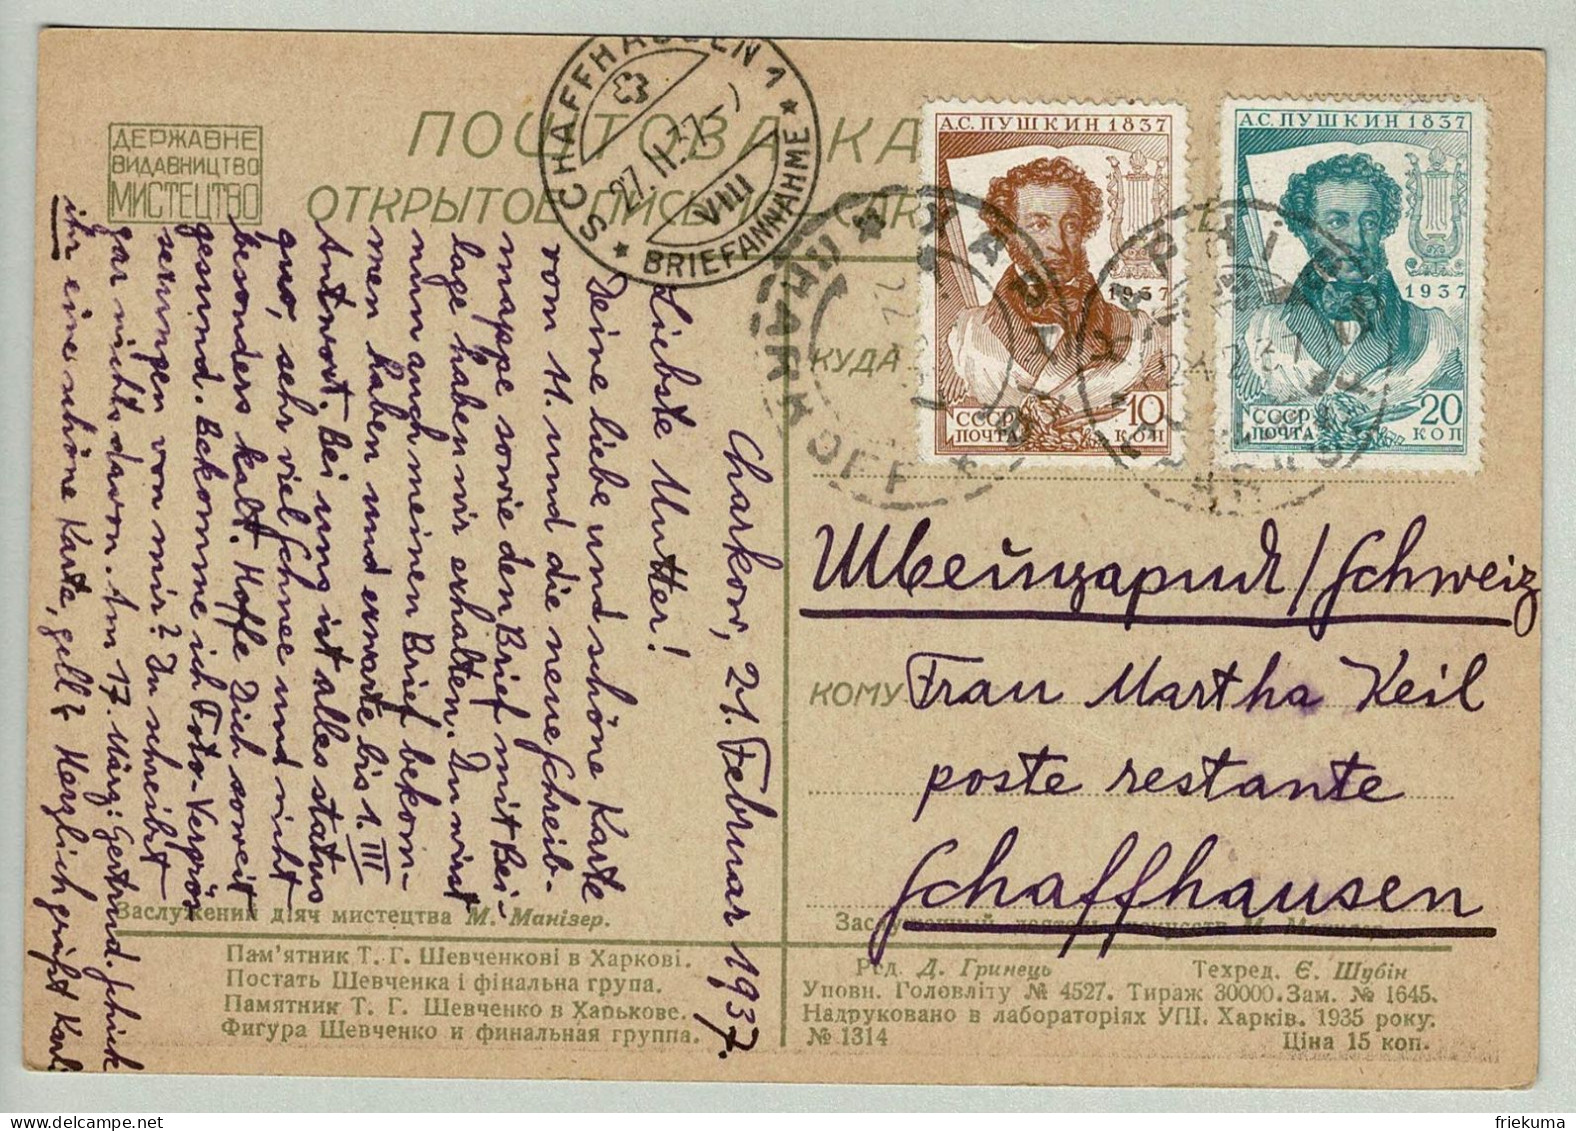 ДЕРЖАВНЕ
ВИДАВНИЦТВО
МИСТЕЦТВО
ПОШТОВА КА
ОТКРЫТОЕ ПИСЬМО
SCHAFFHAUSEN 1
27. II. 37
VIII
BRIEFANNAHME
А.С. ПУШКИН 1837
1937
СССР
ПОЧТА
10
КОП
А.С. ПУШКИН 1837
1937
СССР
ПОЧТА
20
КОП
KHARKOFF
КУДА
Швейцария/Schweiz
КОМУ Frau Martha Keil
poste restante
Schaffhausen
Charkow, 21. Februar 1937.
Liebste Mutter!
Deine liebe und schöne Karte
vom 11. und die neue Schreib-
mappe sowie den Brief mit Bei-
lage haben wir erhalten. Du wirst
nun auch meinen Brief bekom-
men haben und erwarte bis 1. III
Antwort. Bei uns ist alles status
quo, sehr viel Schnee und nicht
besonders kalt. Hoffe Dich soweit
gesund. Bekomme ich Foto-Vergrös
serungen von mir? Du schreibst
gar nichts davon. Am 17. März: Gertrud. Schick
ihr eine schöne Karte, gell? Herzlich grüsst Karl
Заслужений діяч мистецтва М. Манізер.
Пам'ятник Т. Г. Шевченкові в Харкові.
Постать Шевченка і фінальна група.
Памятник Т. Г. Шевченко в Харькове.
Фигура Шевченко и финальная группа.
Заслуженный деятель искусств М. Манизер
Ред. Д. Гринець Техред. Є. Шубін
Уповн. Головліту № 4527. Тираж 30000. Зам. № 1645.
Надруковано в лабораторіях УПІ. Харків. 1935 року.
№ 1314 Ціна 15 коп.
friekuma